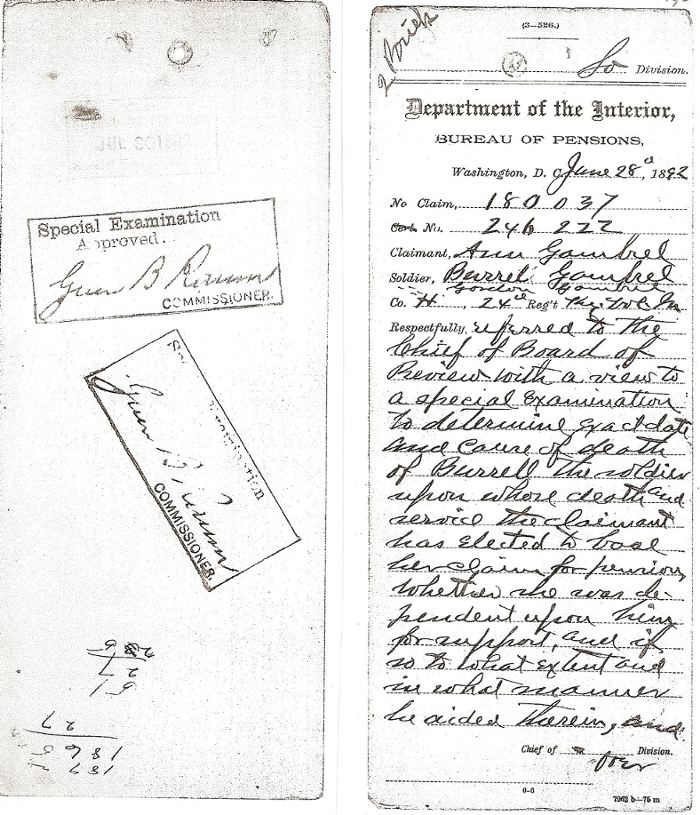 Special Examination
Approved.
COMMISSIONER.
COMMISSIONER.
2 Briefs
(3-526.)
So Division.
Department of the Interior,
BUREAU OF PENSIONS,
Washington, D. C. June 28", 1892
No Claim, 180037
Cert. No. 246 222
Claimant, Ann Gambrel
Soldier, Burrel Gambrel
Co. H, 24" Reg't Ky. Vol. In
Respectfully, referred to the
Chief of Board of
Review with a view to
a special Examination
to determine exact date
and cause of death
of Burrell the soldier
upon whose death and
service the claimant
has elected to base
her claim for pension,
whether she was de-
pendent upon him
for support, and if
so to what extent and
in what manner
he aided therein, and
Chief of Division.
over
0-6
7962 b-75 m